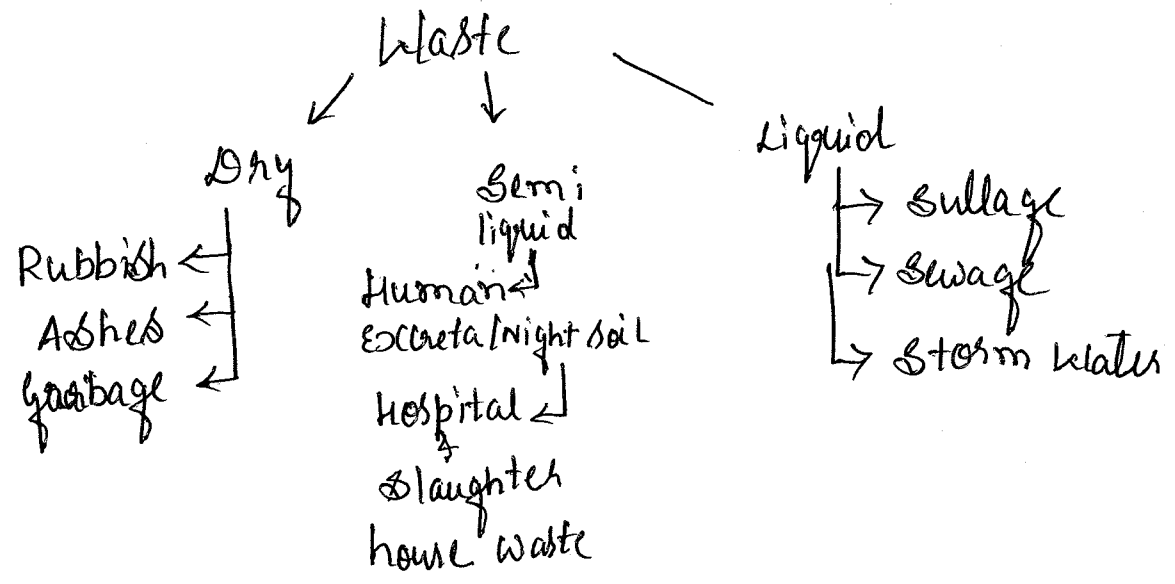 Waste
Dry
Rubbish
Ashes
Garbage
Semi
liquid
Human
Excreta/Night Soil
Hospital
+
Slaughter
house waste
Liquid
Sullage
Sewage
Storm Water